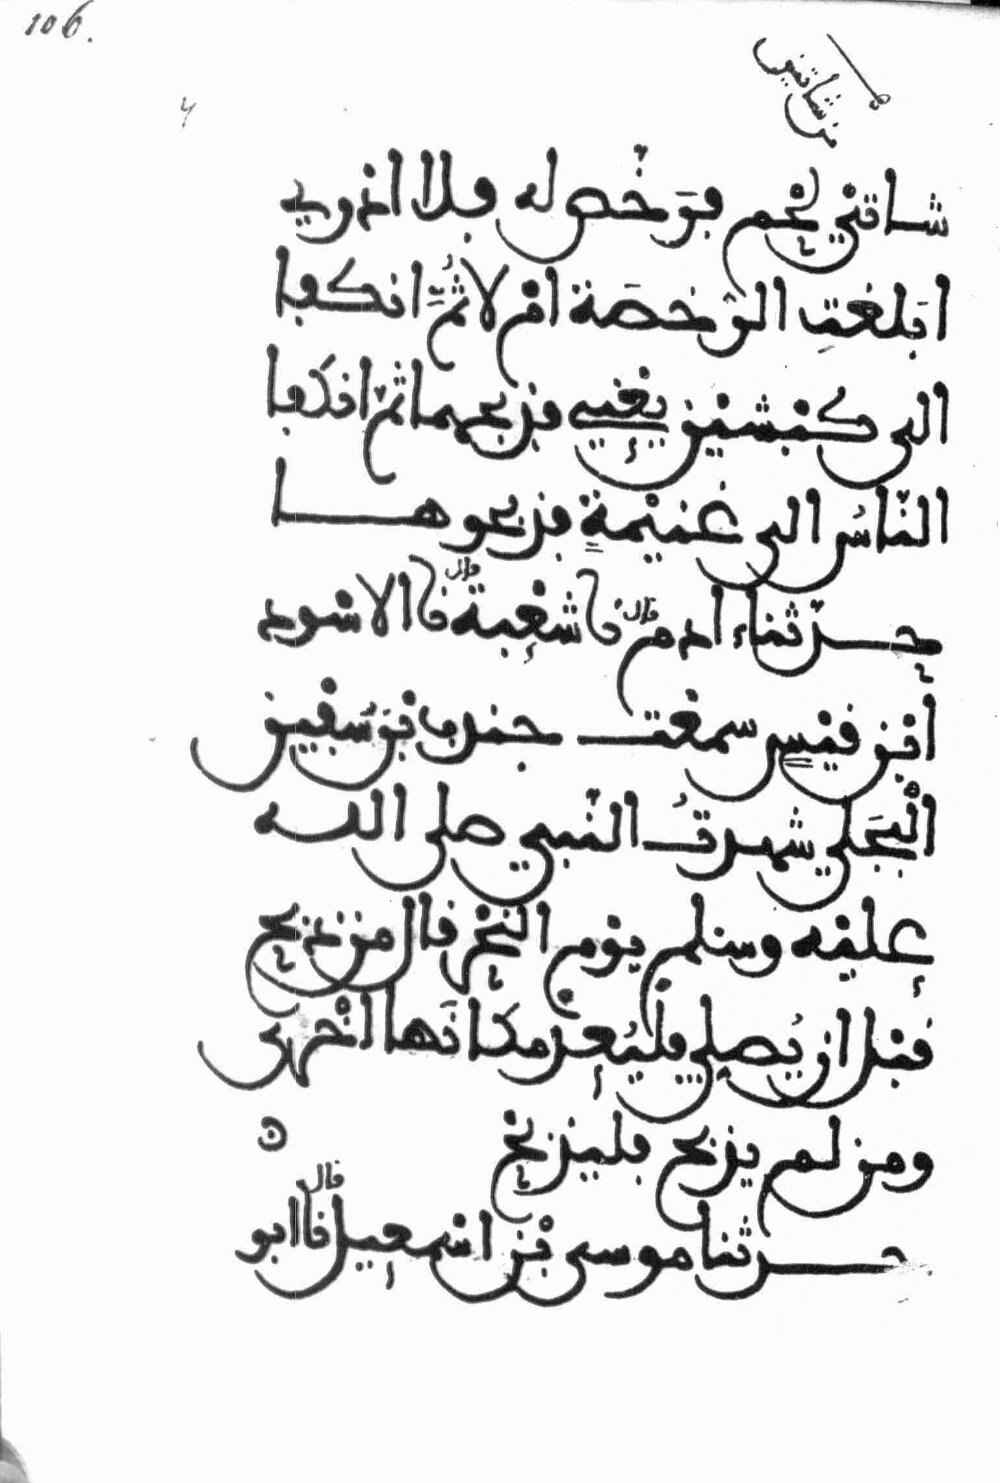 106.
من شاتين
شاتي لحم فرخص له فلا ادري
ابلغت الرخصة ام لا ثم انكفا
الى كبشين يعني فذبحهما ثم انكفا
الناس الى غنيمة فذبحوها
حدثنا ءادم قال نا شعبة قال نا الاسود
ابن قيس سمعت جندب بن سفين
البجلي شهدت النبي صلى الله
عليه وسلم يوم النحر قال من ذبح
قبل ان يصلي فليعد مكانها اخرى
ومن لم يذبح فليذبح
حدثنا موسى بن اسمعيل قال نا ابو